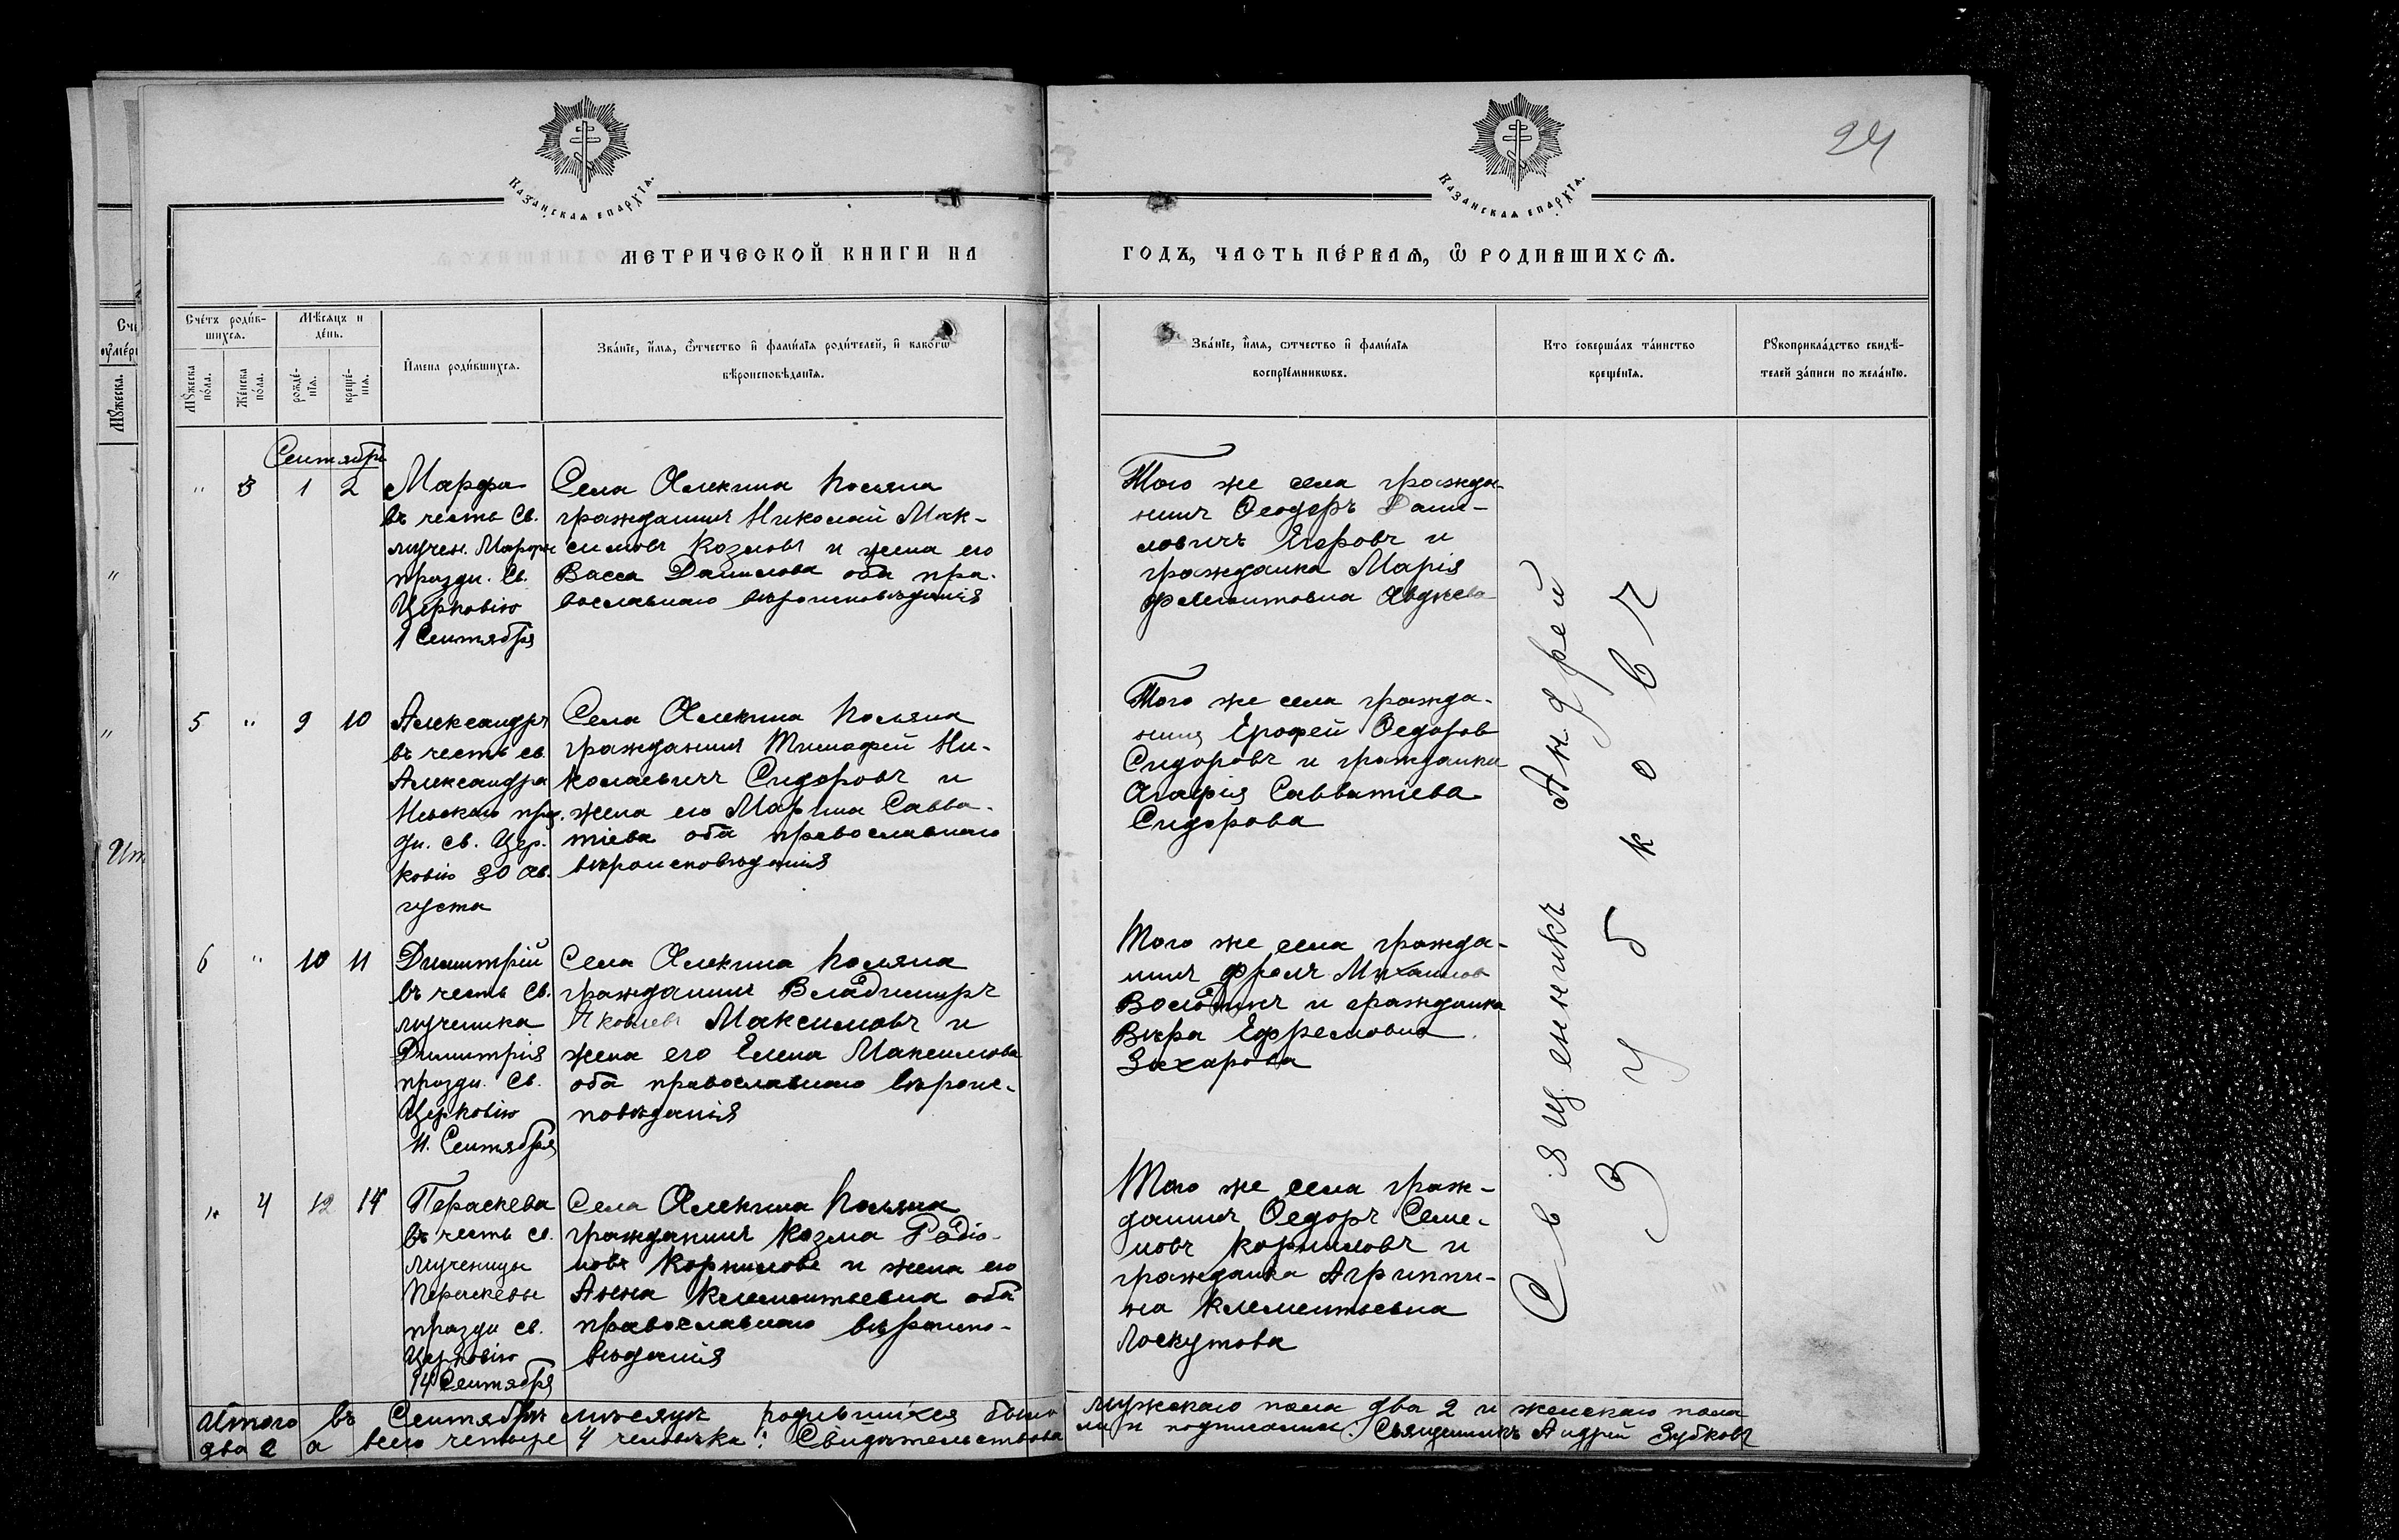 24
Казанская епархїѧ.
Казанская епархїѧ.
МЕТРИЧЕСКОЙ КНИГИ НА
ГОДЪ, ЧАСТЬ ПЕ́РВАѦ, Ѽ РОДИВШИХСѦ.
Сче́тъ роди́в-
шихсѧ.
Мѣ́сѧцъ и
де́нь.
Мꙋ́жеска
по́ла.
Же́нска
по́ла.
рожде́-
нїѧ.
креще́-
нїѧ.
И҆мена роди́вшихсѧ.
Зва́нїе, и҆́мѧ, ѻ҆́тчество и҆ фами́лїѧ роди́телей, и҆ како́гѡ
вѣроисповѣ́данїѧ.
Зва́нїе, и҆́мѧ, ѻтчество и҆ фами́лїѧ
воспрїе́мникѡвъ.
Кто̀ соверша́лъ та́инство
креще́нїѧ.
Рꙋкоприкла́дство свидѣ́-
телей за́писи по жела́нїю.
Сентябрь
" 3 1 2 Марфа
въ честь Св.
мучен. Марфы
праздн. Св.
Церковію
1 Сентября
Села Алекина Поляна
гражданинъ Николай Мак-
симовъ Козловъ и жена его
Васса Данилова оба пра-
вославнаго вѣроисповѣданія
Того же села гражда-
нинъ Ѳеодоръ Дани-
ловичъ Егоровъ и
гражданка Марія
Филитовна
5 " 9 10 Александръ
въ честь св.
Александра
Невскаго праз.
дн. св. Цер.
ковію 30 Ав.
густа
Села Алекина Поляна
гражданинъ Тимофей Ни-
колаевичъ Сидоровъ и
жена его Марина Савва-
тіева оба православнаго
вѣроисповѣданія
Того же села гражда-
нинъ Ерофей Ѳедоров
Сидоровъ и гражданка
Агафія Савватіева
Сидорова
6 " 10 11 Димитрій
въ честь Св.
мученика
Димитрія
праздн. Св.
Церковію
11. Сентября
Села Алекина Поляна
гражданинъ Владимиръ
Яковлевъ Максимовъ и
жена его Елена Максимова
оба православнаго вѣроис-
повѣданія
Того же села гражда-
нинъ Фролъ Михаилов
Володинъ и гражданка
Вѣра Ефремовна
Захарова
" 4 12 14 Параскева
въ честь св.
мученицы
Параскевы
праздн св.
Церковію
14 Сентября
Села Алекина Поляна
гражданинъ Козма Радіо-
новъ Корниловъ и жена его
Анна Клементьевна оба
православнаго вѣроиспо-
вѣданія
Того же села граж-
данинъ Ѳедоръ Семе-
новъ Корниловъ и
гражданка Агриппи-
на Клементьевна
Лоскутова
Священникъ Андрей
Зубковъ
Итого въ Сентябрѣ мѣсяцѣ родившихся было мужскаго пола два 2 и женскаго пола
два 2 а всего четыре 4 человѣка: Свидѣтельствовали и подписали: Священникъ Андрей Зубковъ